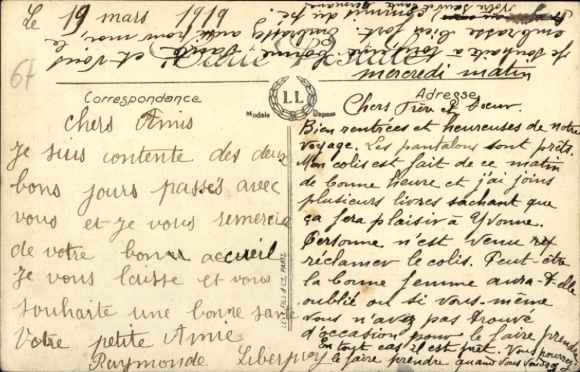 Le 19 mars 1919
Carte Postale
67
Correspondance
Modèle Déposé
LL
Adresse
Chers Amis
Je suis contente des deux
bons jours passés avec
vous et je vous remercie
de votre bonne accueil
Je vous laisse et vous
souhaite une bonne santé
Votre petite Amie
Raymonde Liberprey
mercredi matin
Chers Frère & Soeur.
Bien rentrées et heureuses de notre
voyage. Les pantalons sont prêts.
Mon colis est fait de ce matin
de bonne heure et j'ai joins
plusieurs livres sachant que
ça fera plaisir à Yvonne.
Personne n'est venu
réclamer le colis. Peut-être
la bonne femme aura-t-elle
oublié ou si vous-même
vous n'avez pas trouvé
d'occasion pour le faire prendre
En tout cas il est prêt. Vous pourrez
le faire prendre quand vous voudrez
Je souhaite à tous une bonne santé et vous
embrasse bien fort. Embrassez aussi pour moi
LEVY FILS & Cie, PARIS.